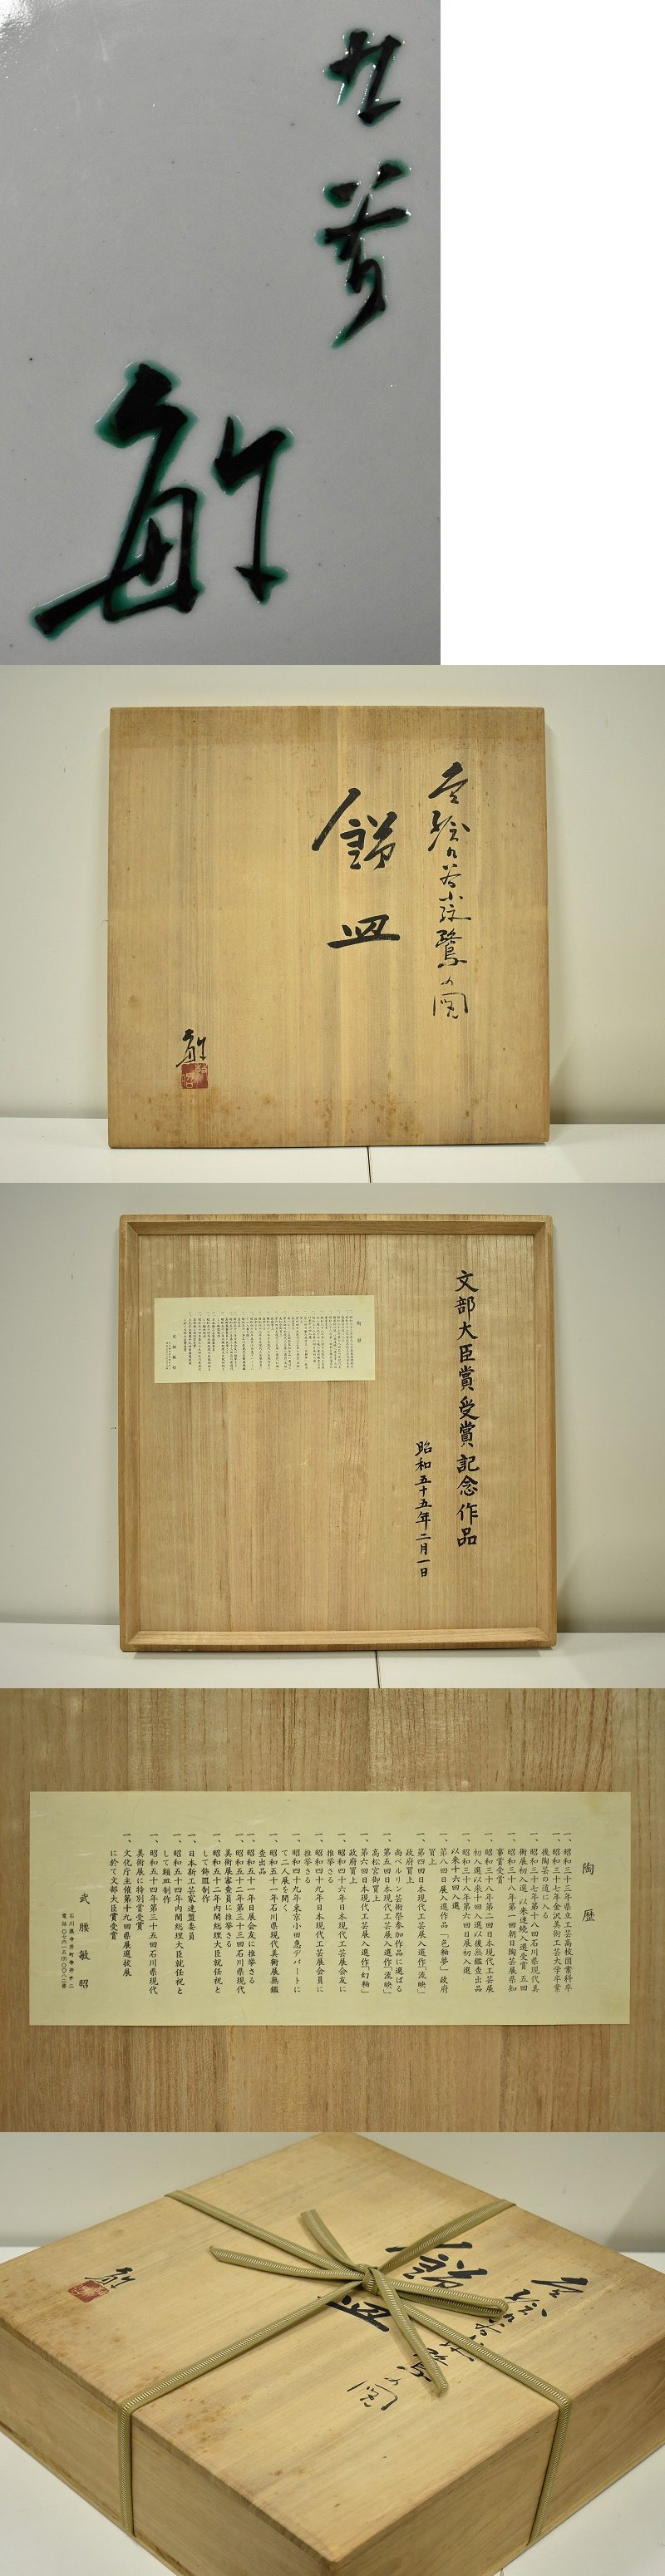 九谷
敏
色絵九谷小紋鷺の図
飾皿
敏
文部大臣賞受賞記念作品
昭和五十五年二月一日
陶歴
一、昭和三十三年県立工芸高校図案科卒
一、昭和三十七年金沢美術工芸大学卒業
後陶芸の道に入る
一、昭和三十七年第十八回石川県現代美
術展初入選 以来連続入選受賞五回
一、昭和三十八年第一回朝日陶芸展県知
事賞受賞
一、昭和三十八年第二回日本現代工芸展
初入選以来十回入選以後無鑑査出品
一、昭和三十八年第六回日展初入選
以来十六回入選
一、第八回日展入選作品「色釉夢」政府
買上
一、第四回日本現代工芸展入選作「流映」
政府買上
尚ベルリン芸術祭参加作品に選ばる
一、第五回日本現代工芸展入選作「流映」
高松宮御買上
一、第六回日本現代工芸展入選作「幻釉」
政府買上
一、昭和四十六年日本現代工芸展会友に
推挙さる
一、昭和四十九年日本現代工芸展会員に
推挙さる
一、昭和四十九年東京小田急デパートに
て二人展を開く
一、昭和五十一年石川県現代美術展無鑑
査出品
一、昭和五十一年日展会友に推挙さる
一、昭和五十二年第三十三回石川県現代
美術展審査員に推挙さる
一、昭和五十二年内閣総理大臣就任祝と
して飾皿制作
一、日本新工芸家連盟委員
一、昭和五十四年内閣総理大臣就任祝と
して額皿制作
一、昭和五十四年第三十五回石川県現代
美術展に特別賞受賞
一、文化庁主催第十九回県展選抜展
に於て文部大臣賞受賞
武腰敏昭
飾皿
色絵九谷小紋鷺の図
敏